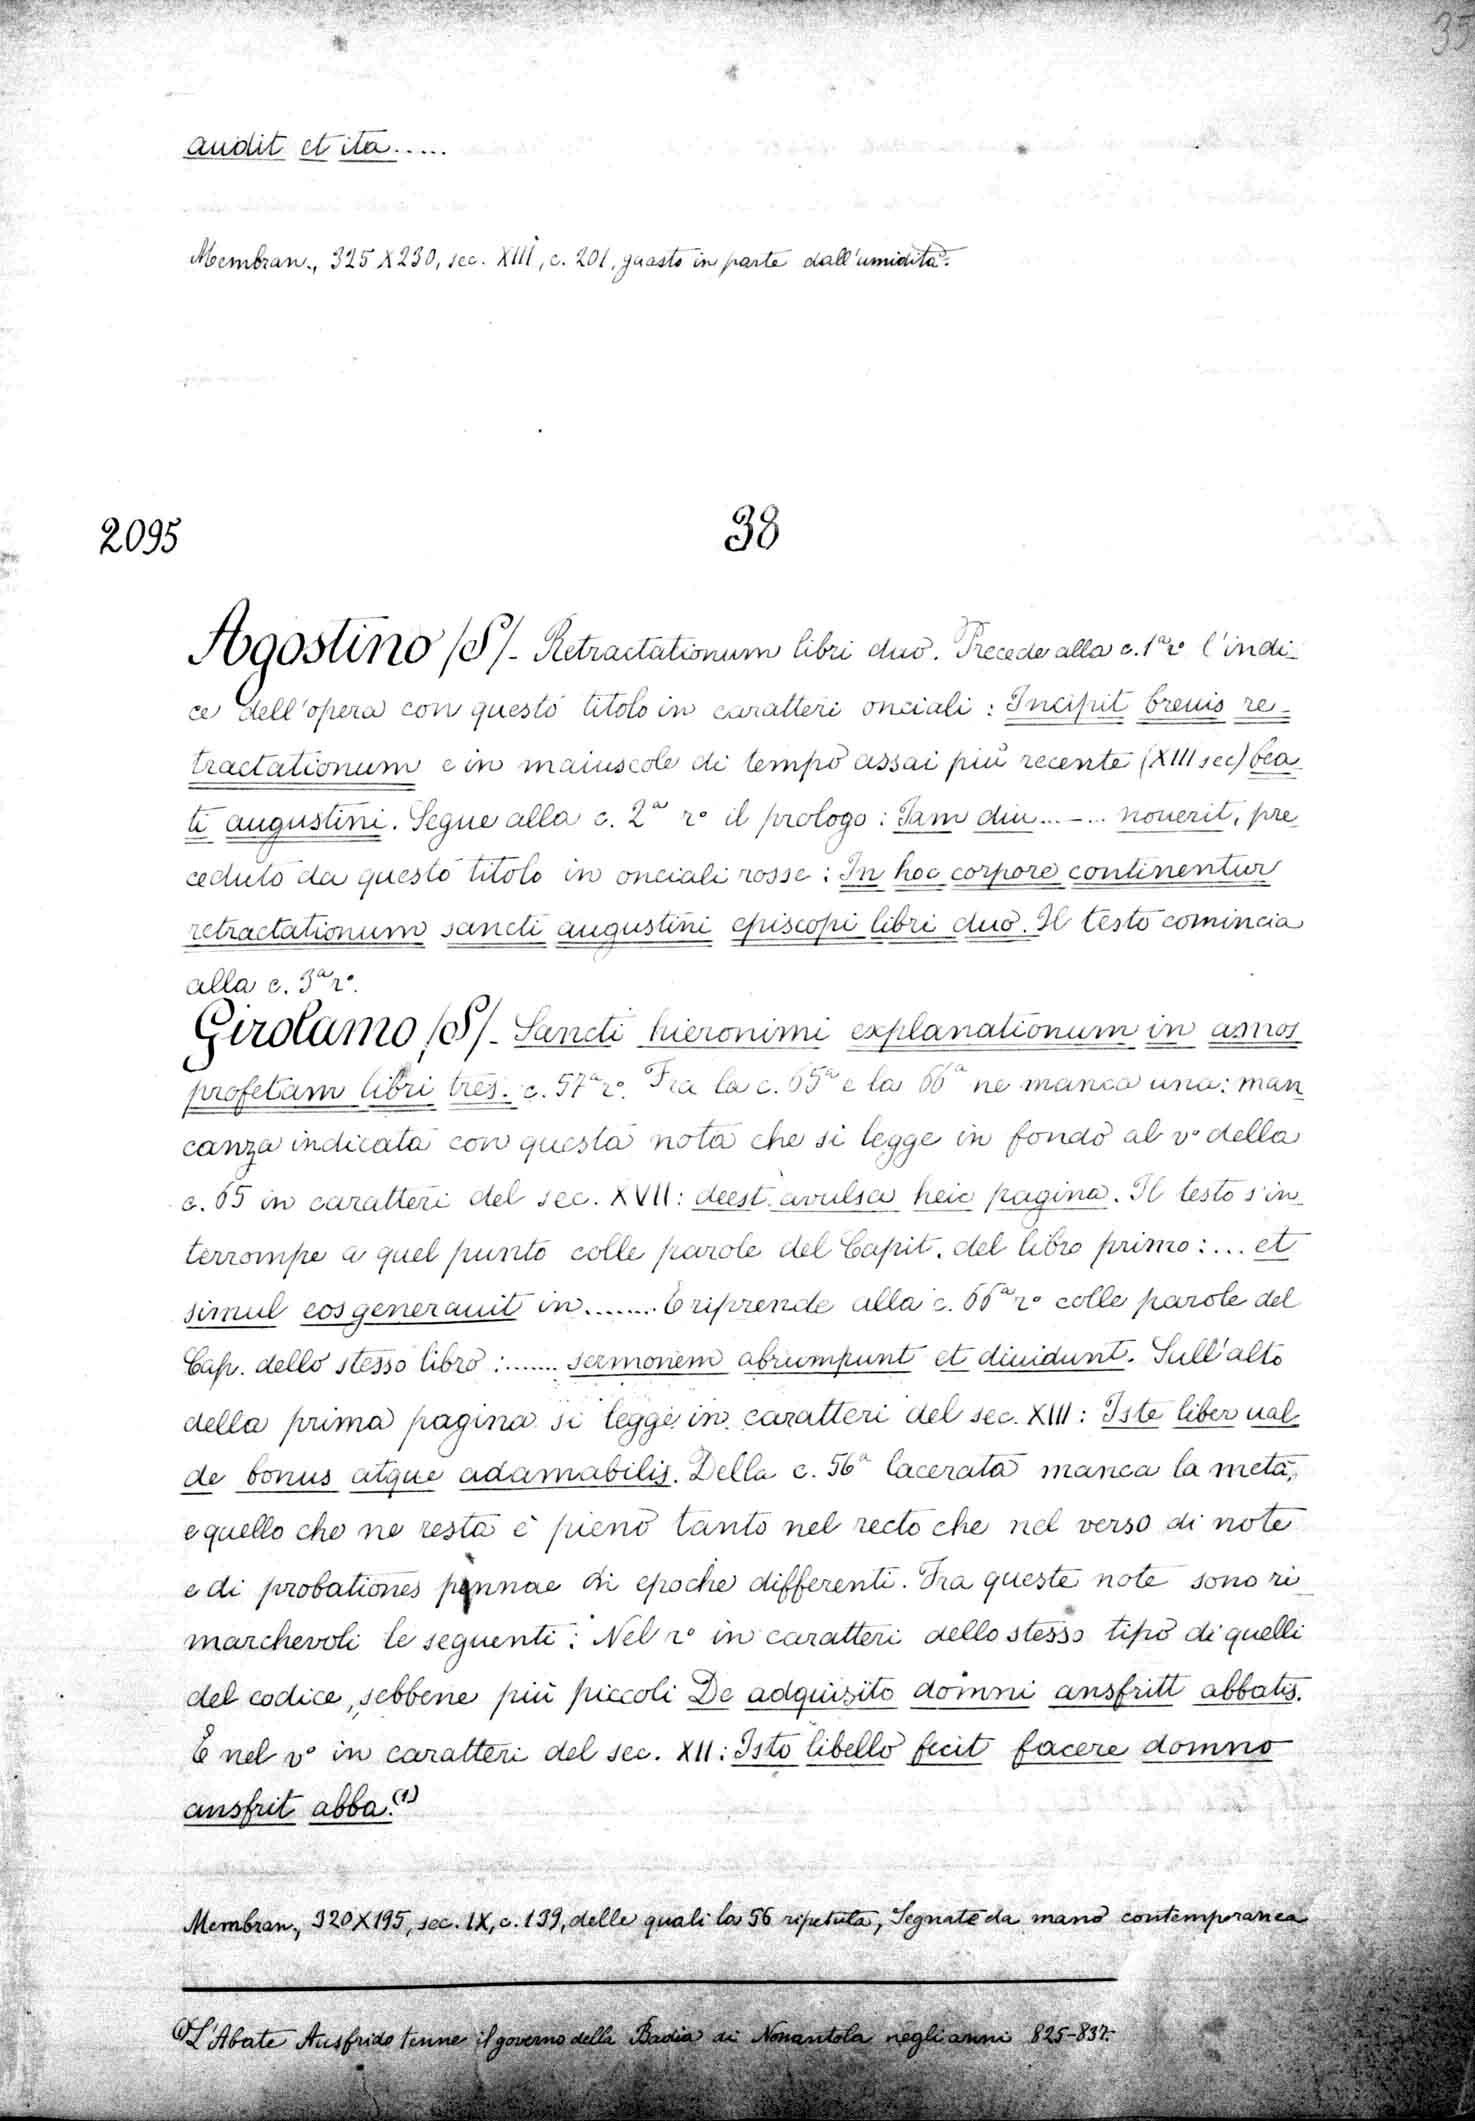 35
audit et ita.....
Membran., 325 X 230, sec. XIII, c. 201, guasto in parte dall'umidità.
2095
38
Agostino /S/- Retractationum libri duo. Precede alla c. 1ª rº l'indi-
ce dell'opera con questo titolo in caratteri onciali: Incipit breuis re-
tractationum e in maiuscole di tempo assai più recente (XIII sec) bea
ti augustini. Segue alla c. 2ª rº il prologo: Iam diu...-... nouerit, pre
ceduto da questo titolo in onciali rosse: In hoc corpore continentur
retractationum sancti augustini episcopi libri duo. Il testo comincia
alla c. 3ª rº.
Girolamo /S/- Sancti hieronimi explanationum in amos
profetam libri tres. c. 57ª rº. Fra la c. 65ª e la 66ª ne manca una: man
canza indicata con questa nota che si legge in fondo al vº della
c. 65 in caratteri del sec. XVII: deest avulsa heic pagina. Il testo s'in
terrompe a quel punto colle parole del Capit. del libro primo: ... et
simul eos generauit in....... E riprende alla c. 66ª rº colle parole del
Cap. dello stesso libro:....... sermonem abrumpunt et diuidunt. Sull'alto
della prima pagina si legge in caratteri del sec. XIII: Iste liber ual
de bonus atque adamabilis. Della c. 56ª lacerata manca la metà,
e quello che ne resta è pieno tanto nel recto che nel verso di note
e di probationes pennae di epoche differenti. Fra queste note sono ri
marchevoli le seguenti: Nel rº in caratteri dello stesso tipo di quelli
del codice, sebbene più piccoli De adquisito domni ansfritt abbatis.
E nel vº in caratteri del sec. XII: Isto libello fecit facere domno
ansfrit abba.(1)
Membran., 320 X 195, sec. IX, c. 139, delle quali la 56 ripetuta, Segnate da mano contemporanea
(1) L'Abate Ausfrido tenne il governo della Badia di Nonantola negli anni 825-837.